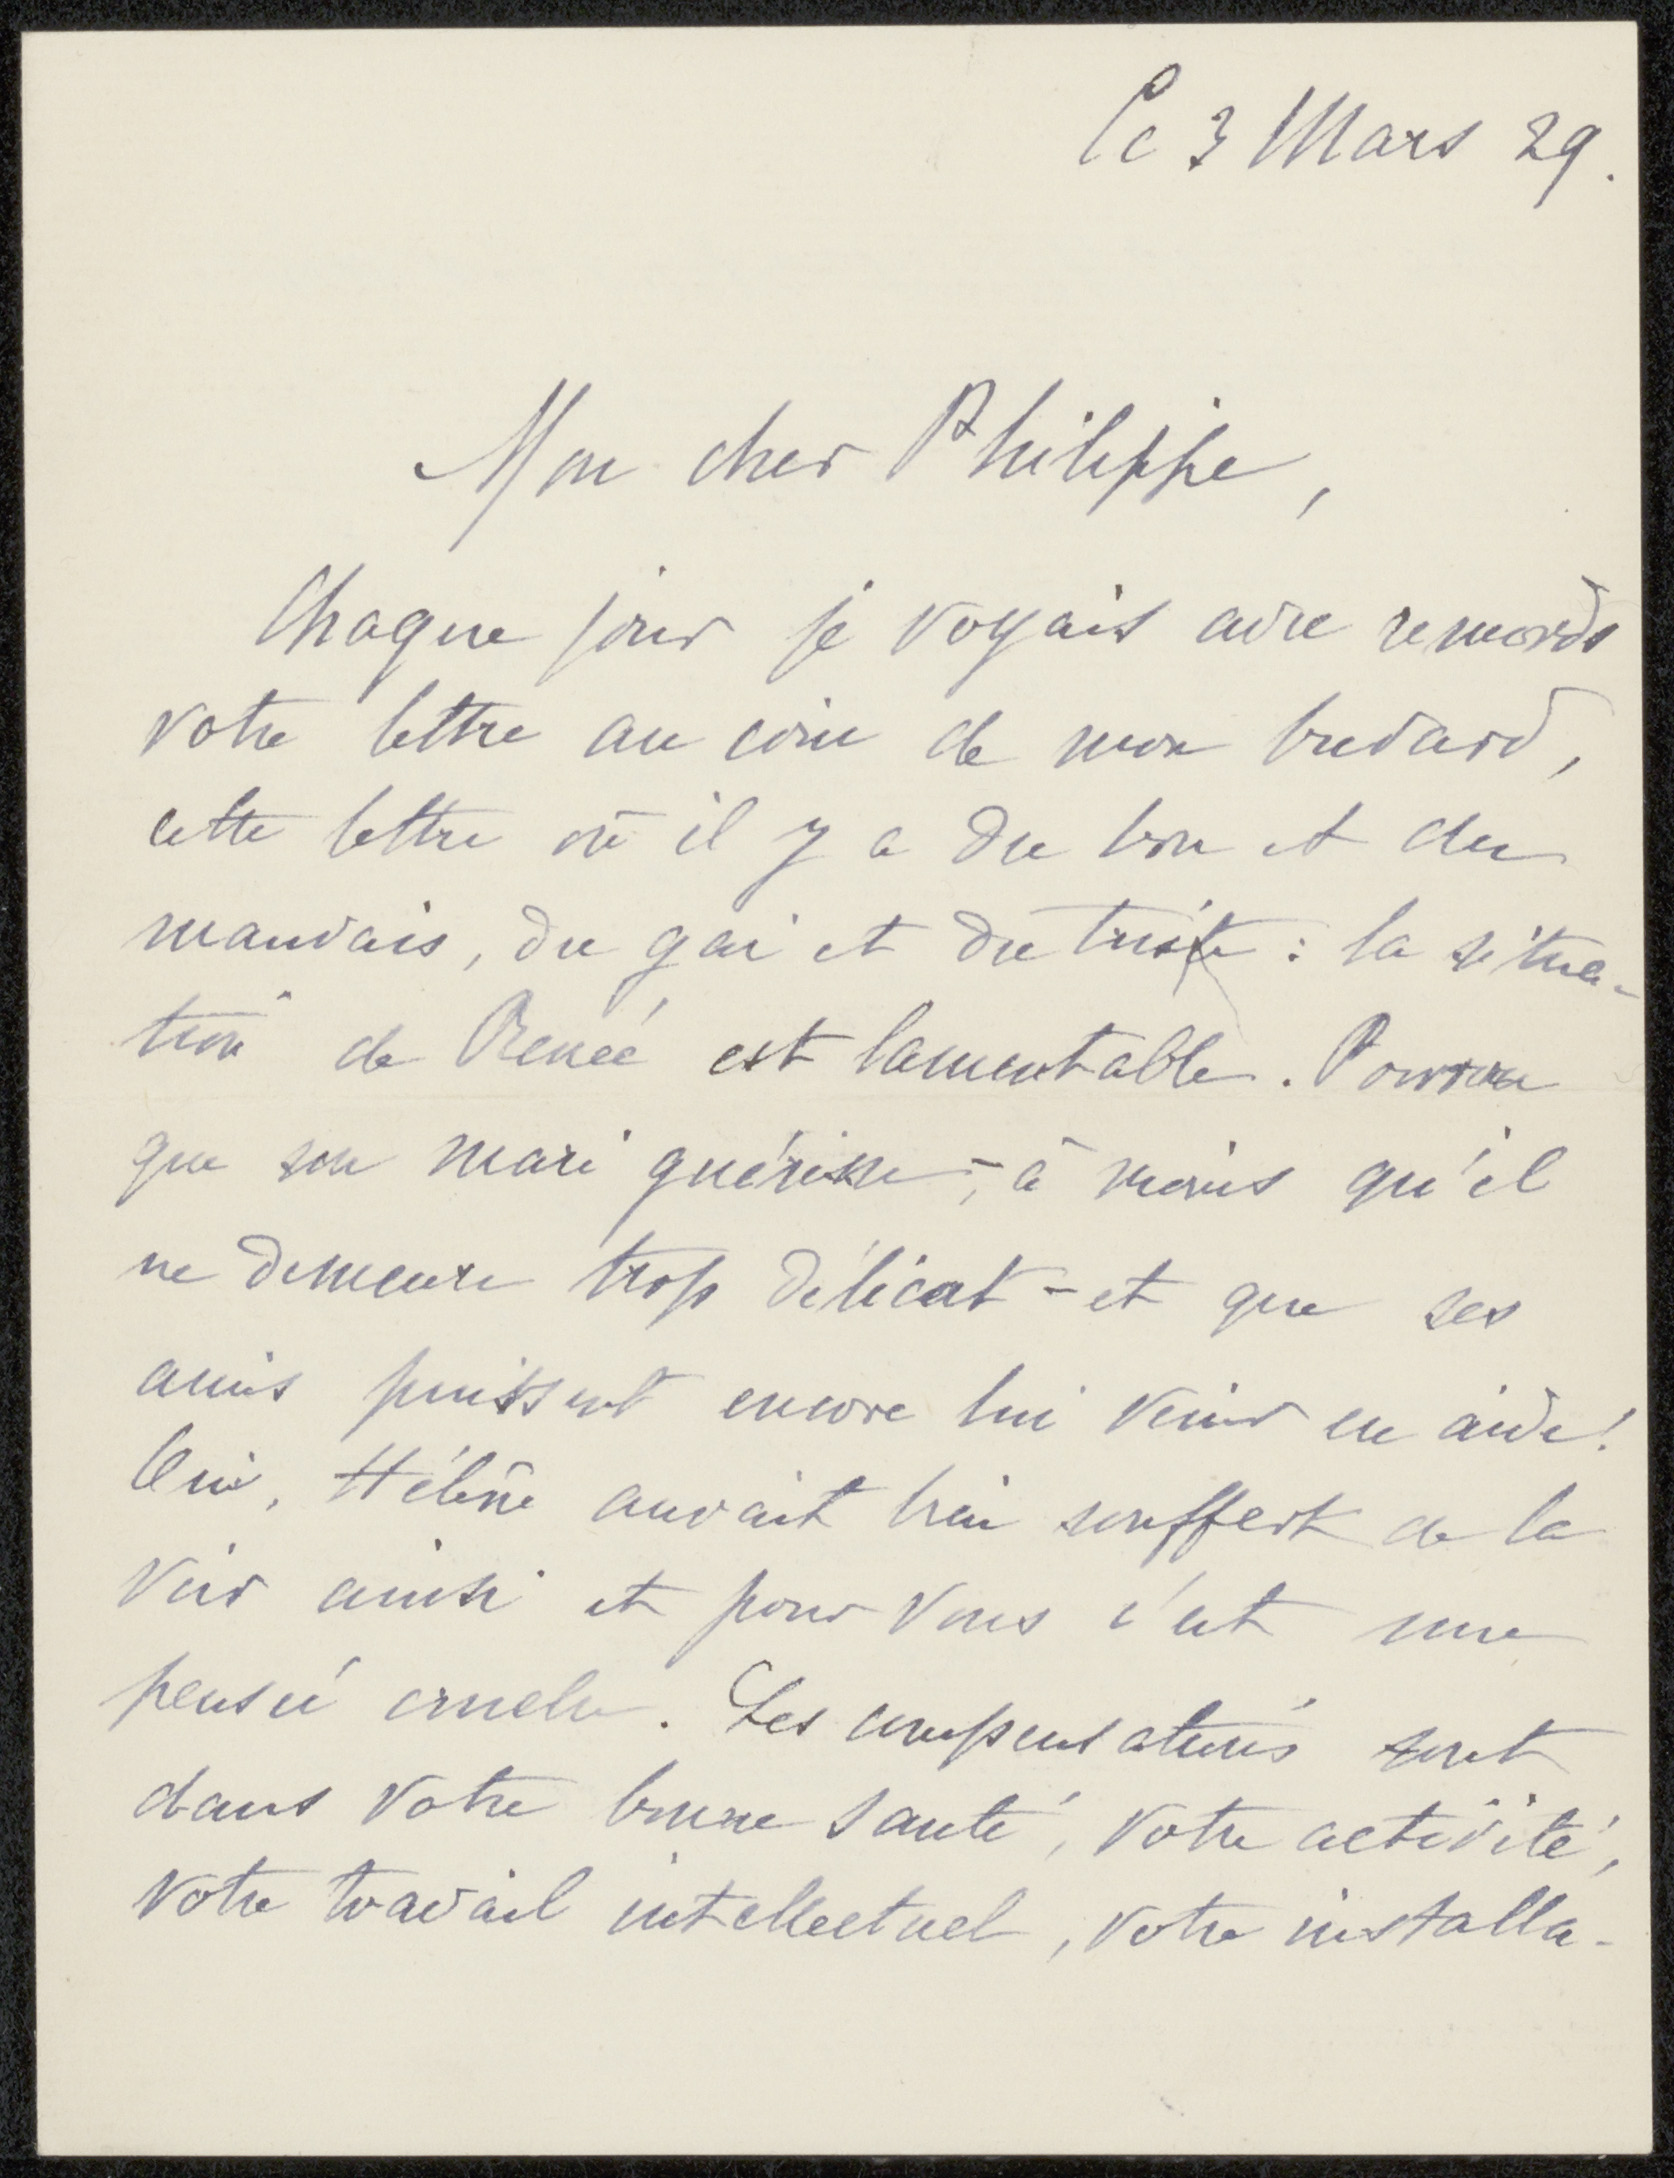 Le 3 Mars 29.
Mon cher Philippe,
Chaque jour je voyais avec remords
votre lettre au coin de mon buvard,
cette lettre où il y a du bon et du
mauvais, du gai et du triste : la situa-
tion de Renée est lamentable. Pourvu
que son mari guérisse, - à moins qu'il
ne demeure trop délicat - et que ses
amis puissent encore lui venir en aide!
Oui, Hélène aurait bien souffert de la
voir ainsi et pour vous c'est une
pensée cruelle. Les compensations sont
dans votre bonne santé, votre activité,
votre travail intellectuel, votre installa-